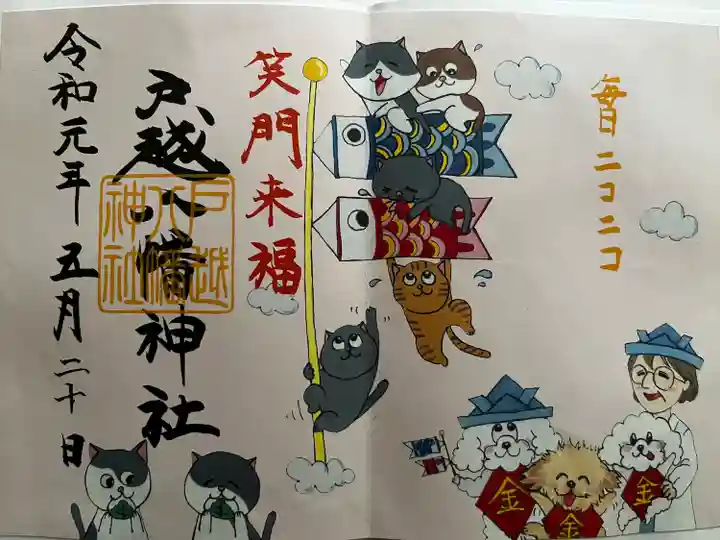 毎日ニコニコ
笑門来福
戸越八幡神社
戸越
八幡
神社
令和元年五月二十日
金
金
金